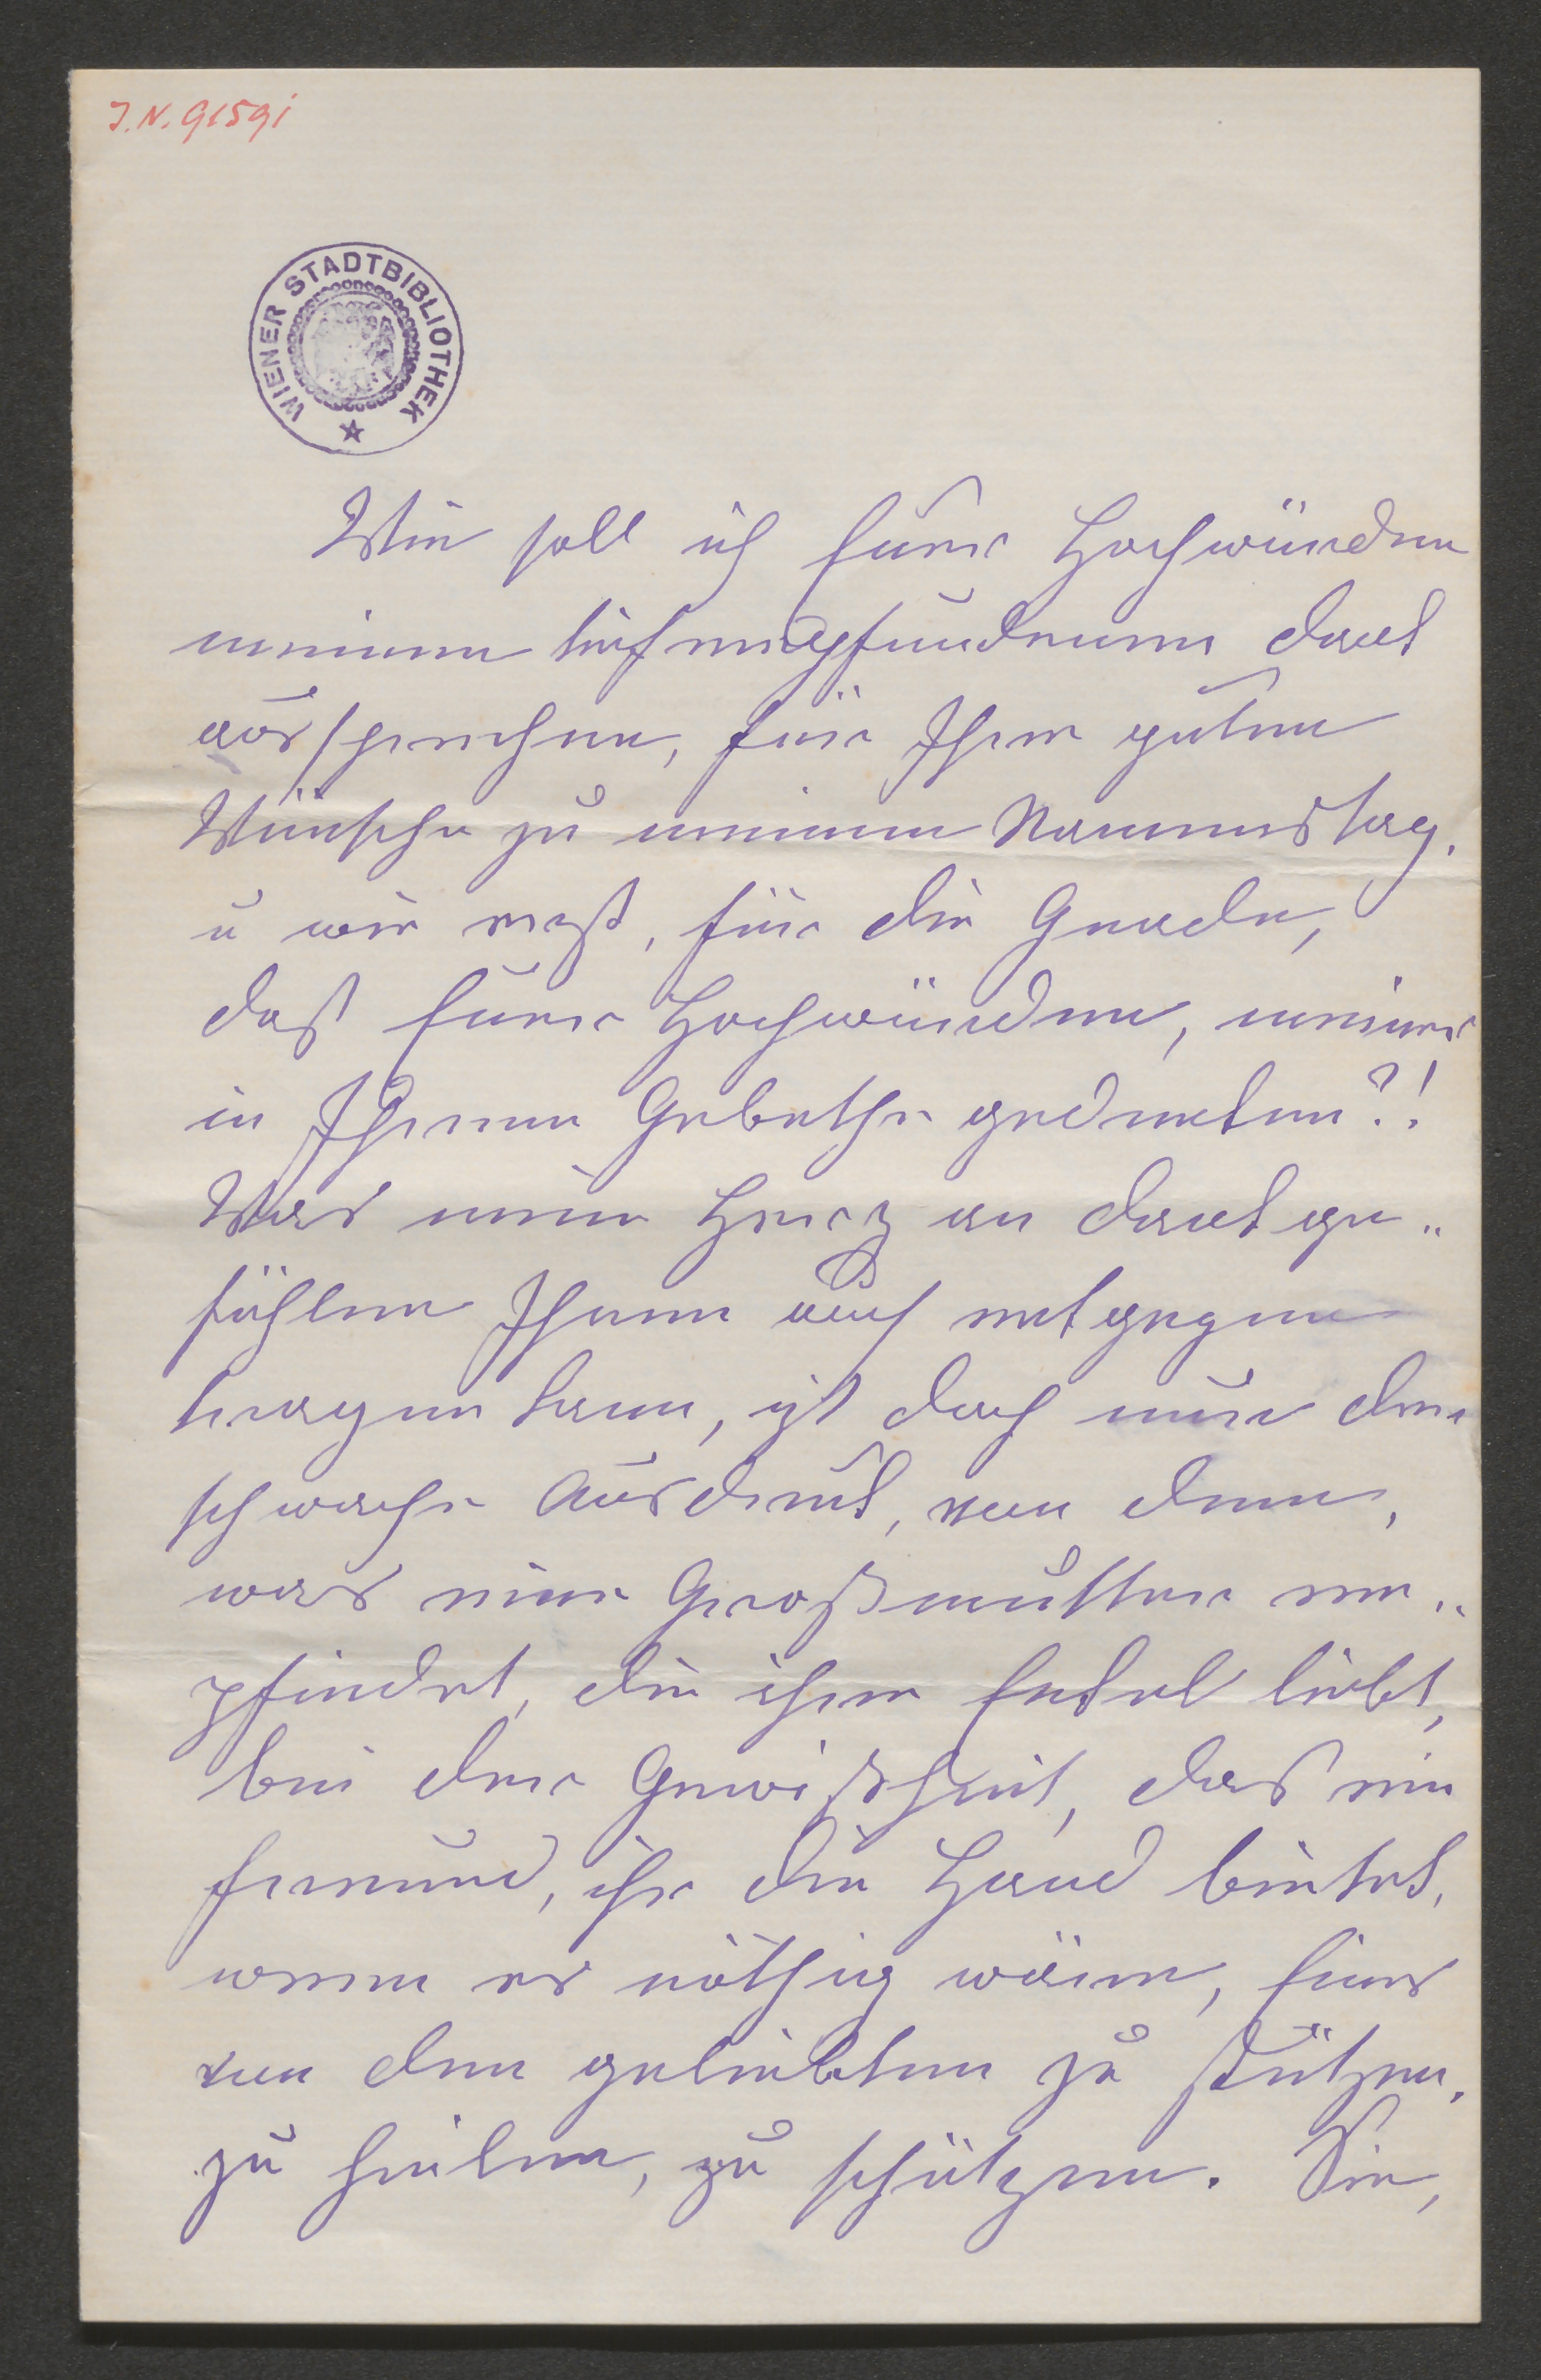 J.N. 91591
WIENER STADTBIBLIOTHEK
Wie soll ich Eurer Hochwürden
meinen tiefempfundenen Dank
aussprechen, für Ihre guten
Wünsche zu meinem Namenstag,
u wie erst, für die Gnade,
daß Eurer Hochwürden, meiner
in Ihrem Gebethe gedenken?!
Was mein Herz an Dankge„
fühlen Ihnen auch entgegen
tragen kann, ist doch nur der
schwache Ausdruck, von dem,
was eine Großmutter em„
pfindet, die ihre Enkel liebt,
bei der Gewißheit, das ein
Freund, ihr die Hand bietet,
wenn es nöthig wäre, Eines
von den geliebten zu stützen,
zu heilen, zu schützen. Sie,